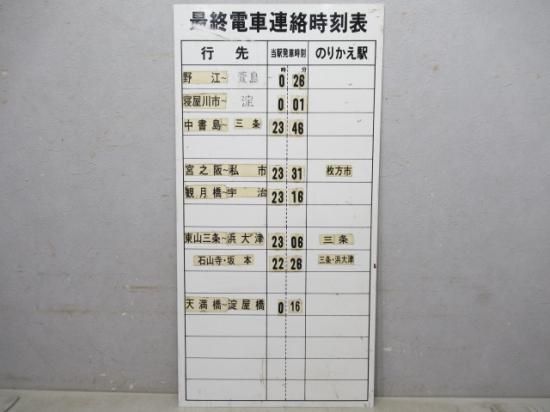 最終電車連絡時刻表
行先 当駅発車時刻 のりかえ駅
時 分
野江~萱島 0 26
寝屋川市~淀 0 01
中書島~三条 23 46
宮之阪~私市 23 31 枚方市
観月橋~宇治 23 16
東山三条~浜大津 23 06 三条
石山寺・坂本 22 26 三条・浜大津
天満橋~淀屋橋 0 16